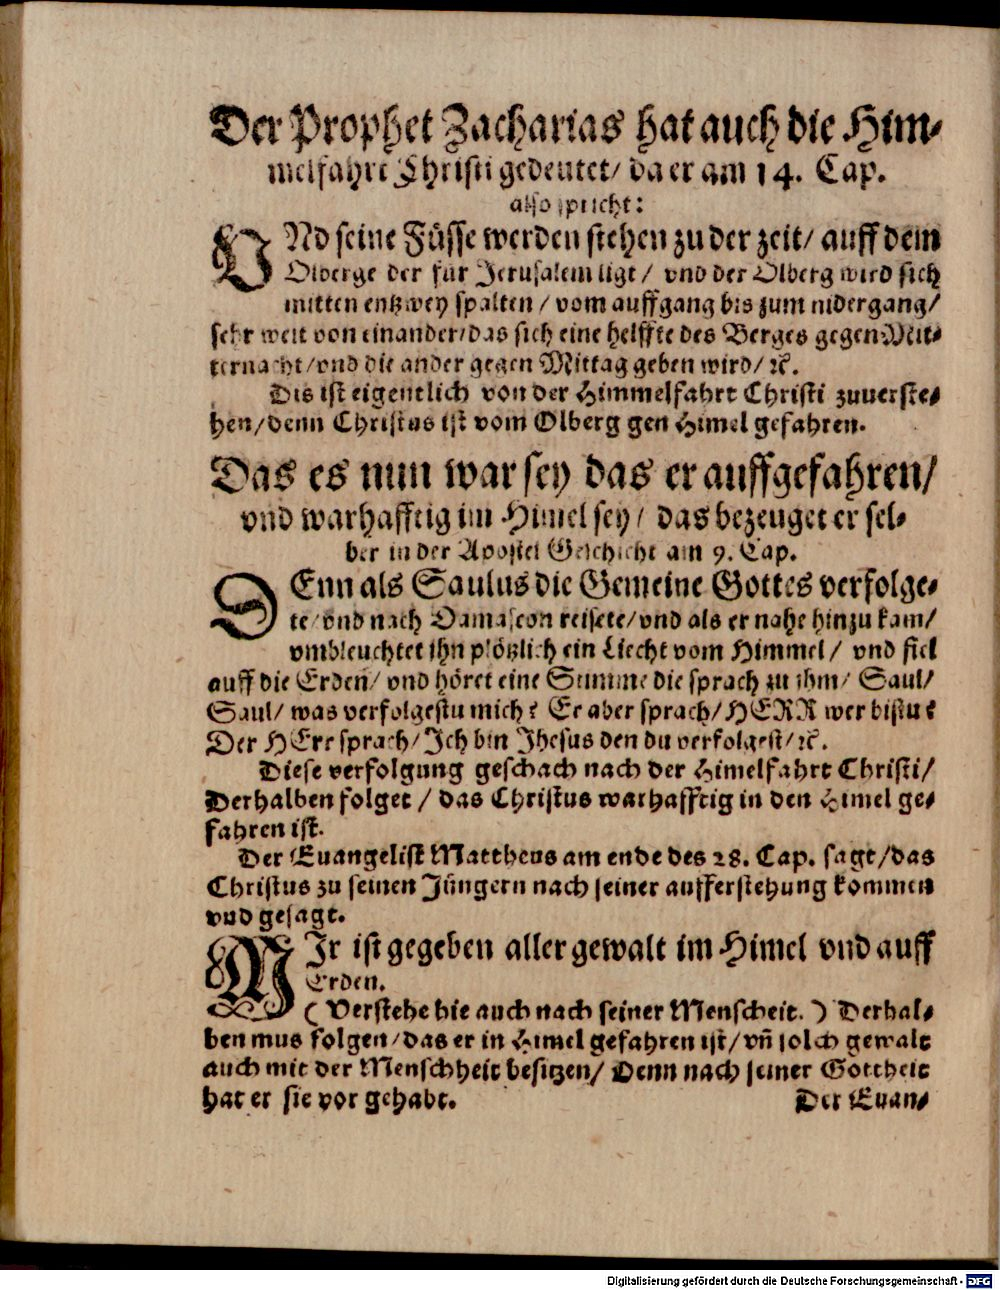 Der Prophet Zacharias hat auch die Him⸗
melfahrt Christi gedeutet/ da er am 14. Cap.
also spricht:
VNd seine Füsse werden stehen zu der zeit/ auff dem
Olberge der für Jerusalem ligt/ vnd der Olberg wird sich
mitten entzwey spalten/ vom auffgang bis zum nidergang/
sehr weit von einander/das sich eine helffte des Berges gegen Mit⸗
ternacht/vnd die ander gegen Mittag geben wird/ ꝛc.
Dis ist eigentlich von der Himmelfahrt Christi zuuerste⸗
hen/denn Christus ist vom Olberg gen Himel gefahren.
Das es nun war sey das er auffgefahren/
vnd warhafftig im Himel sey/ das bezeuget er sel⸗
ber in der Apostel Geschicht am 9. Cap.
DEnn als Saulus die Gemeine Gottes verfolge⸗
te/vnd nach Damascon reisete/vnd als er nahe hinzu kam/
vmbleuchtet ihn plötzlich ein Liecht vom Himmel/ vnd fiel
auff die Erden/ vnd höret eine Stimme die sprach zu ihm/ Saul/
Saul/ was verfolgestu mich? Er aber sprach/HERR wer bistu?
Der HErr sprach/Ich bin Jhesus den du verfolgest/ꝛc.
Diese verfolgung geschach nach der Himelfahrt Christi/
Derhalben folget/ das Christus warhafftig in den Himel ge⸗
fahren ist.
Der Euangelist Mattheus am ende des 28. Cap. sagt/das
Christus zu seinen Jüngern nach seiner aufferstehung kommen
vnd gesagt.
MIr ist gegeben aller gewalt im Himel vnd auff
Erden.
(Verstehe hie auch nach seiner Menscheit.) Derhal⸗
ben mus folgen/das er in Himel gefahren ist/vñ solch gewalt
auch mit der Menschheit besitzen/ Denn nach seiner Gottheit
hat er sie vor gehabt.
Der Euan⸗
Digitalisierung gefördert durch die Deutsche Forschungsgemeinschaft - DFG